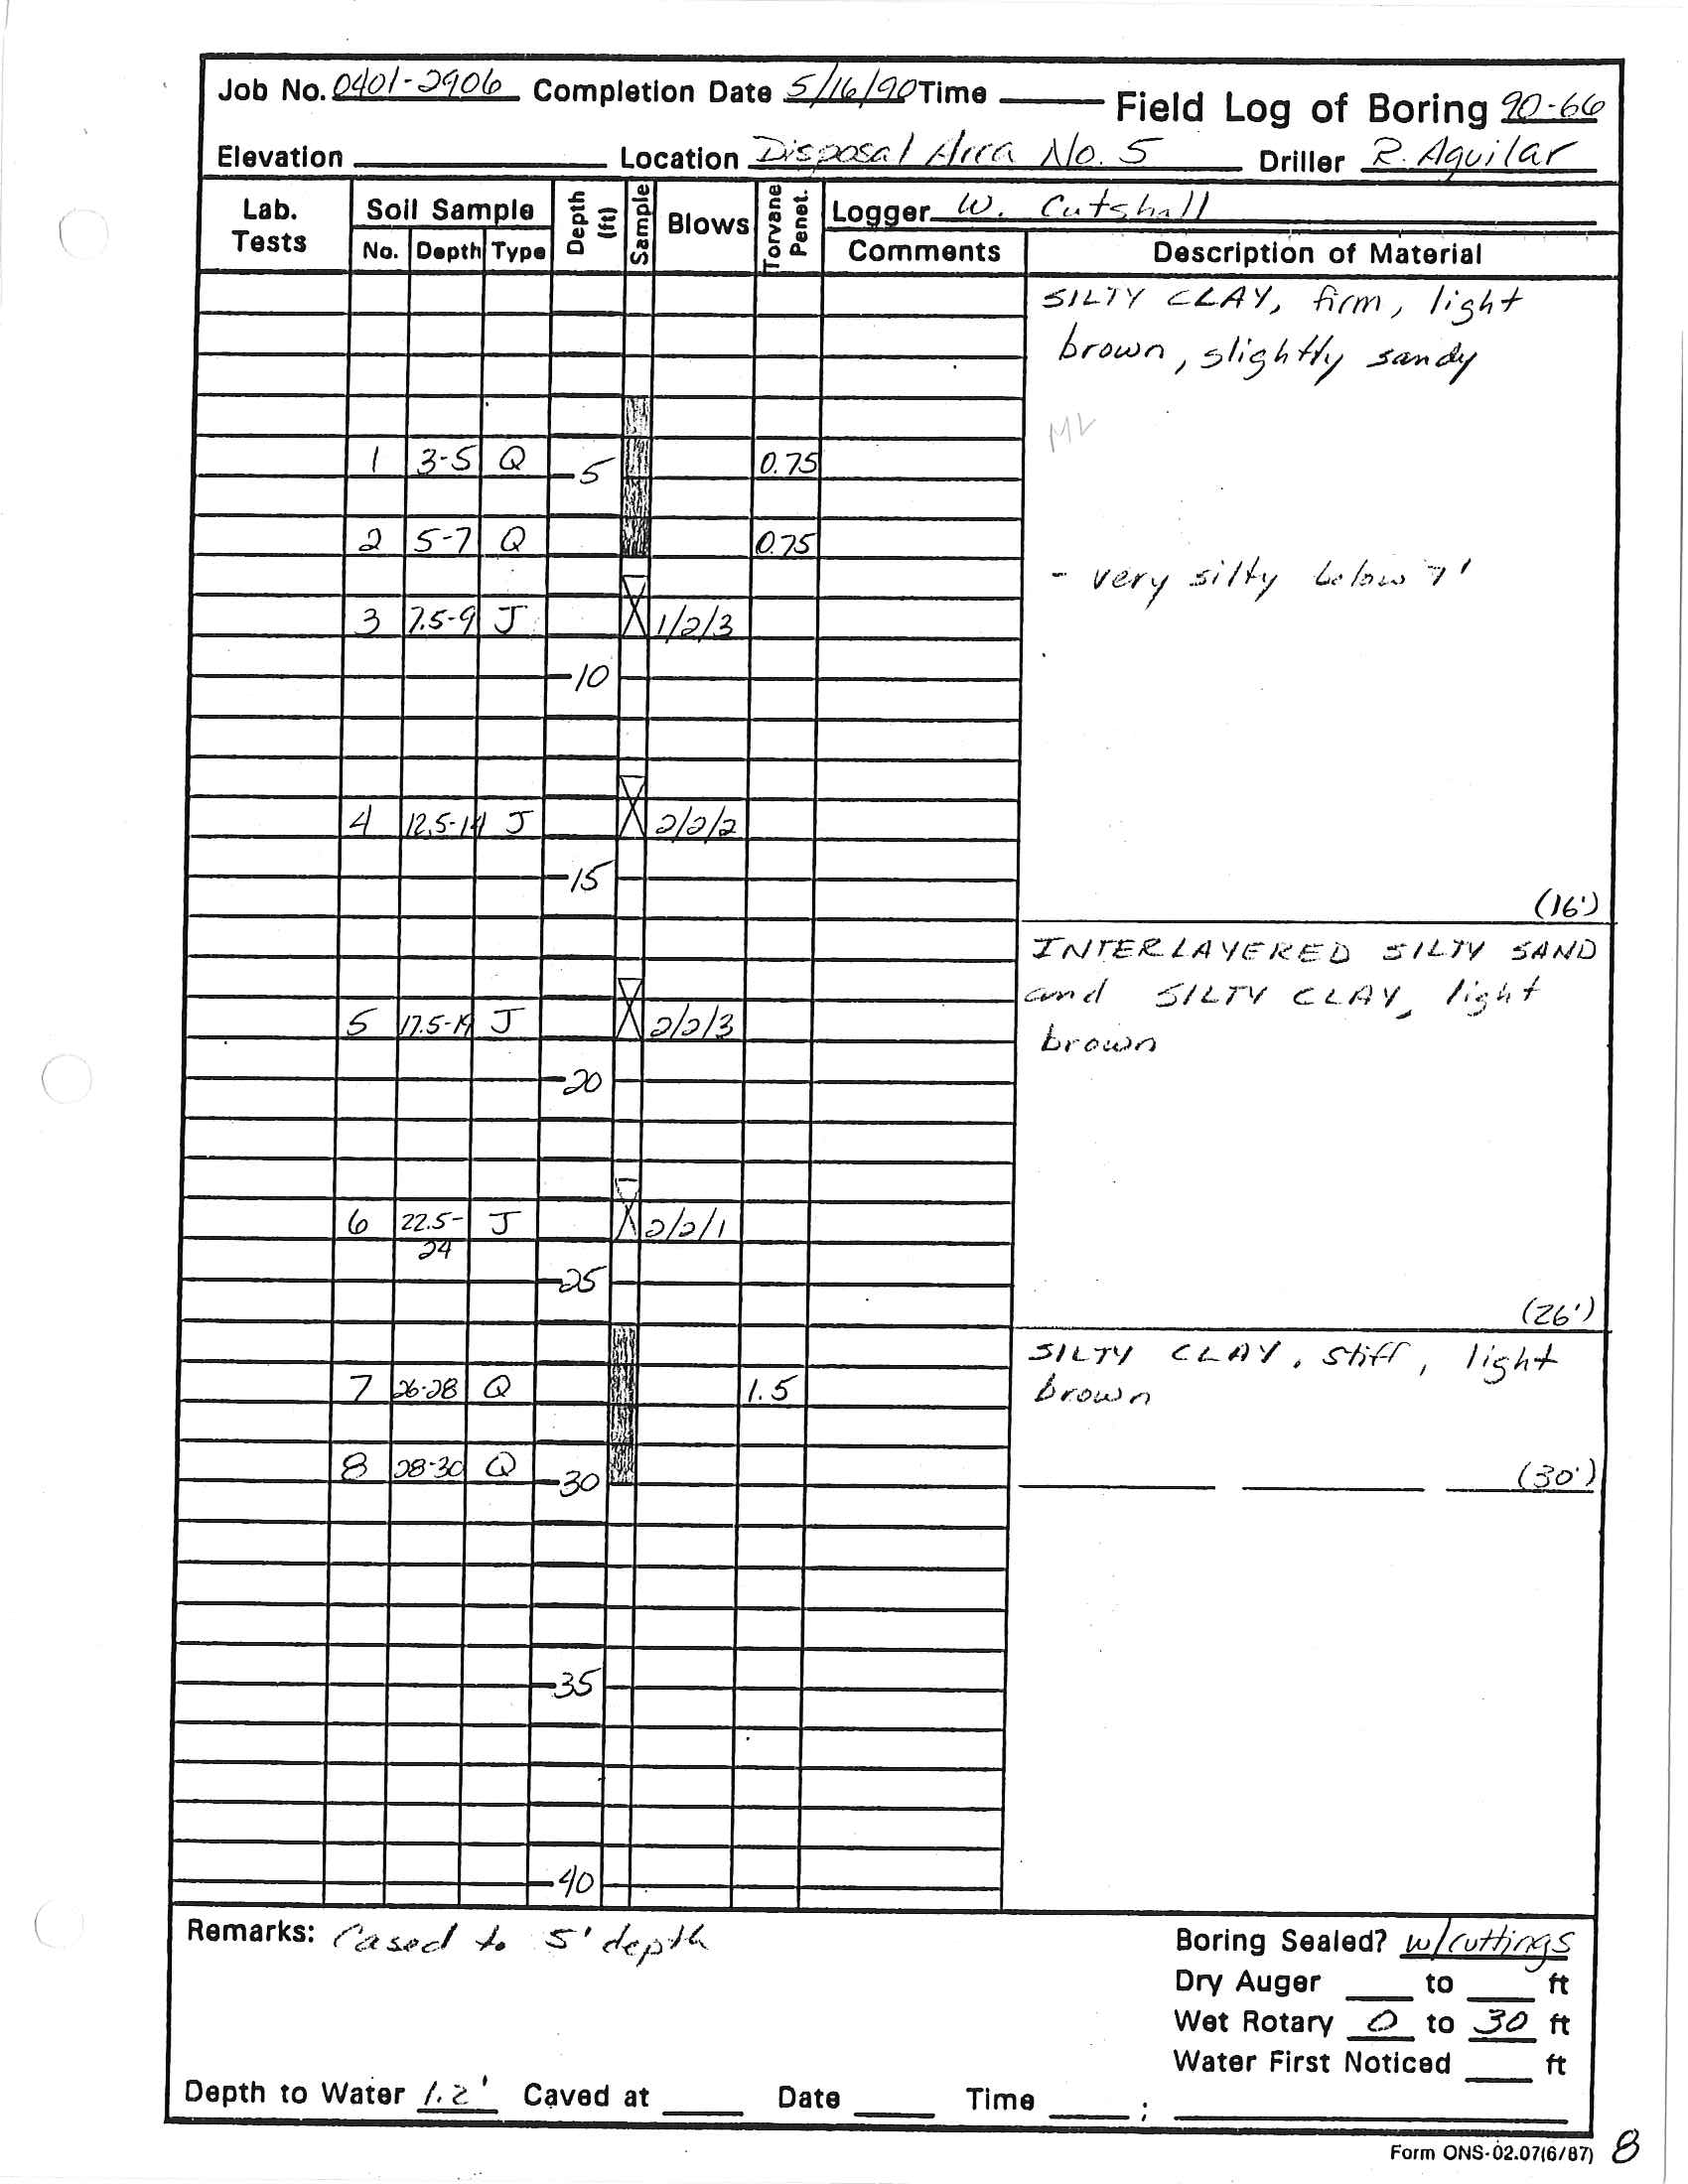 Job No. 0401-2906 Completion Date 5/16/90 Time Field Log of Boring 90-66
Elevation Location Disposal Area No. 5 Driller R. Aguilar
Lab. Tests Soil Sample Depth (ft) Sample Blows Torvane Penet. Logger W. Cutshall
No. Depth Type Comments Description of Material
SILTY CLAY, firm, light
brown, slightly sandy
ML
1 3-5 Q 0.75
5
2 5-7 Q 0.75
- very silty below 7'
3 7.5-9 J 1/2/3
10
4 12.5-14 J 2/2/2
15
(16')
INTERLAYERED SILTY SAND
and SILTY CLAY, light
5 17.5-19 J 2/2/3
brown
20
6 22.5-24 J 2/2/1
25
(26')
SILTY CLAY, stiff, light
7 26-28 Q 1.5 brown
8 28-30 Q (30')
30
35
40
Remarks: Cased to 5' depth Boring Sealed? w/cuttings
Dry Auger to ft
Wet Rotary 0 to 30 ft
Water First Noticed ft
Depth to Water 1.2' Caved at Date Time ;
Form ONS-02.07(6/87) 8